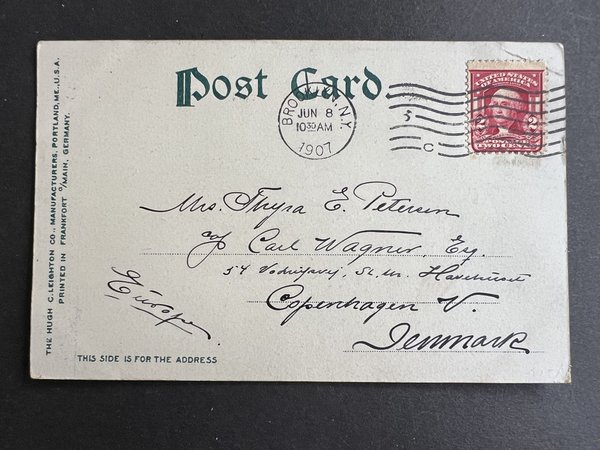 THE HUGH C. LEIGHTON CO., MANUFACTURERS, PORTLAND, ME., U.S.A.
PRINTED IN FRANKFORT O/MAIN, GERMANY.
Post Card.
N.Y.
JUN 8
10 30 AM
1907
5
C
UNITED STATES
OF AMERICA
2 2
TWO CENTS
Mrs. Thyra E. Petersen
c/o Carl Wagner, Esq.
54
Copenhagen V.
Denmark
Europe
THIS SIDE IS FOR THE ADDRESS